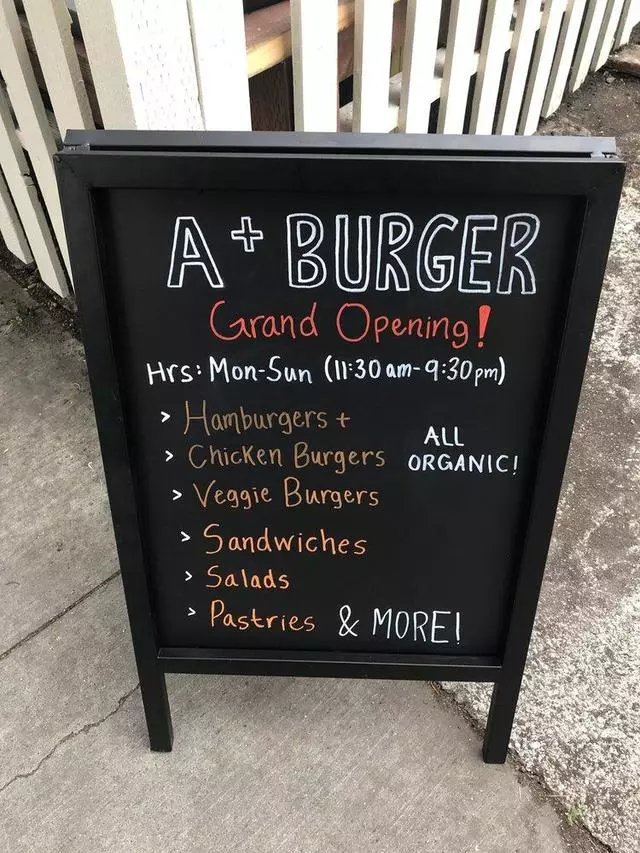 A+ BURGER
Grand Opening!
Hrs: Mon-Sun (11:30am-9:30pm)
> Hamburgers +
> Chicken Burgers
ALL
ORGANIC!
> Veggie Burgers
> Sandwiches
> Salads
> Pastries & MORE!